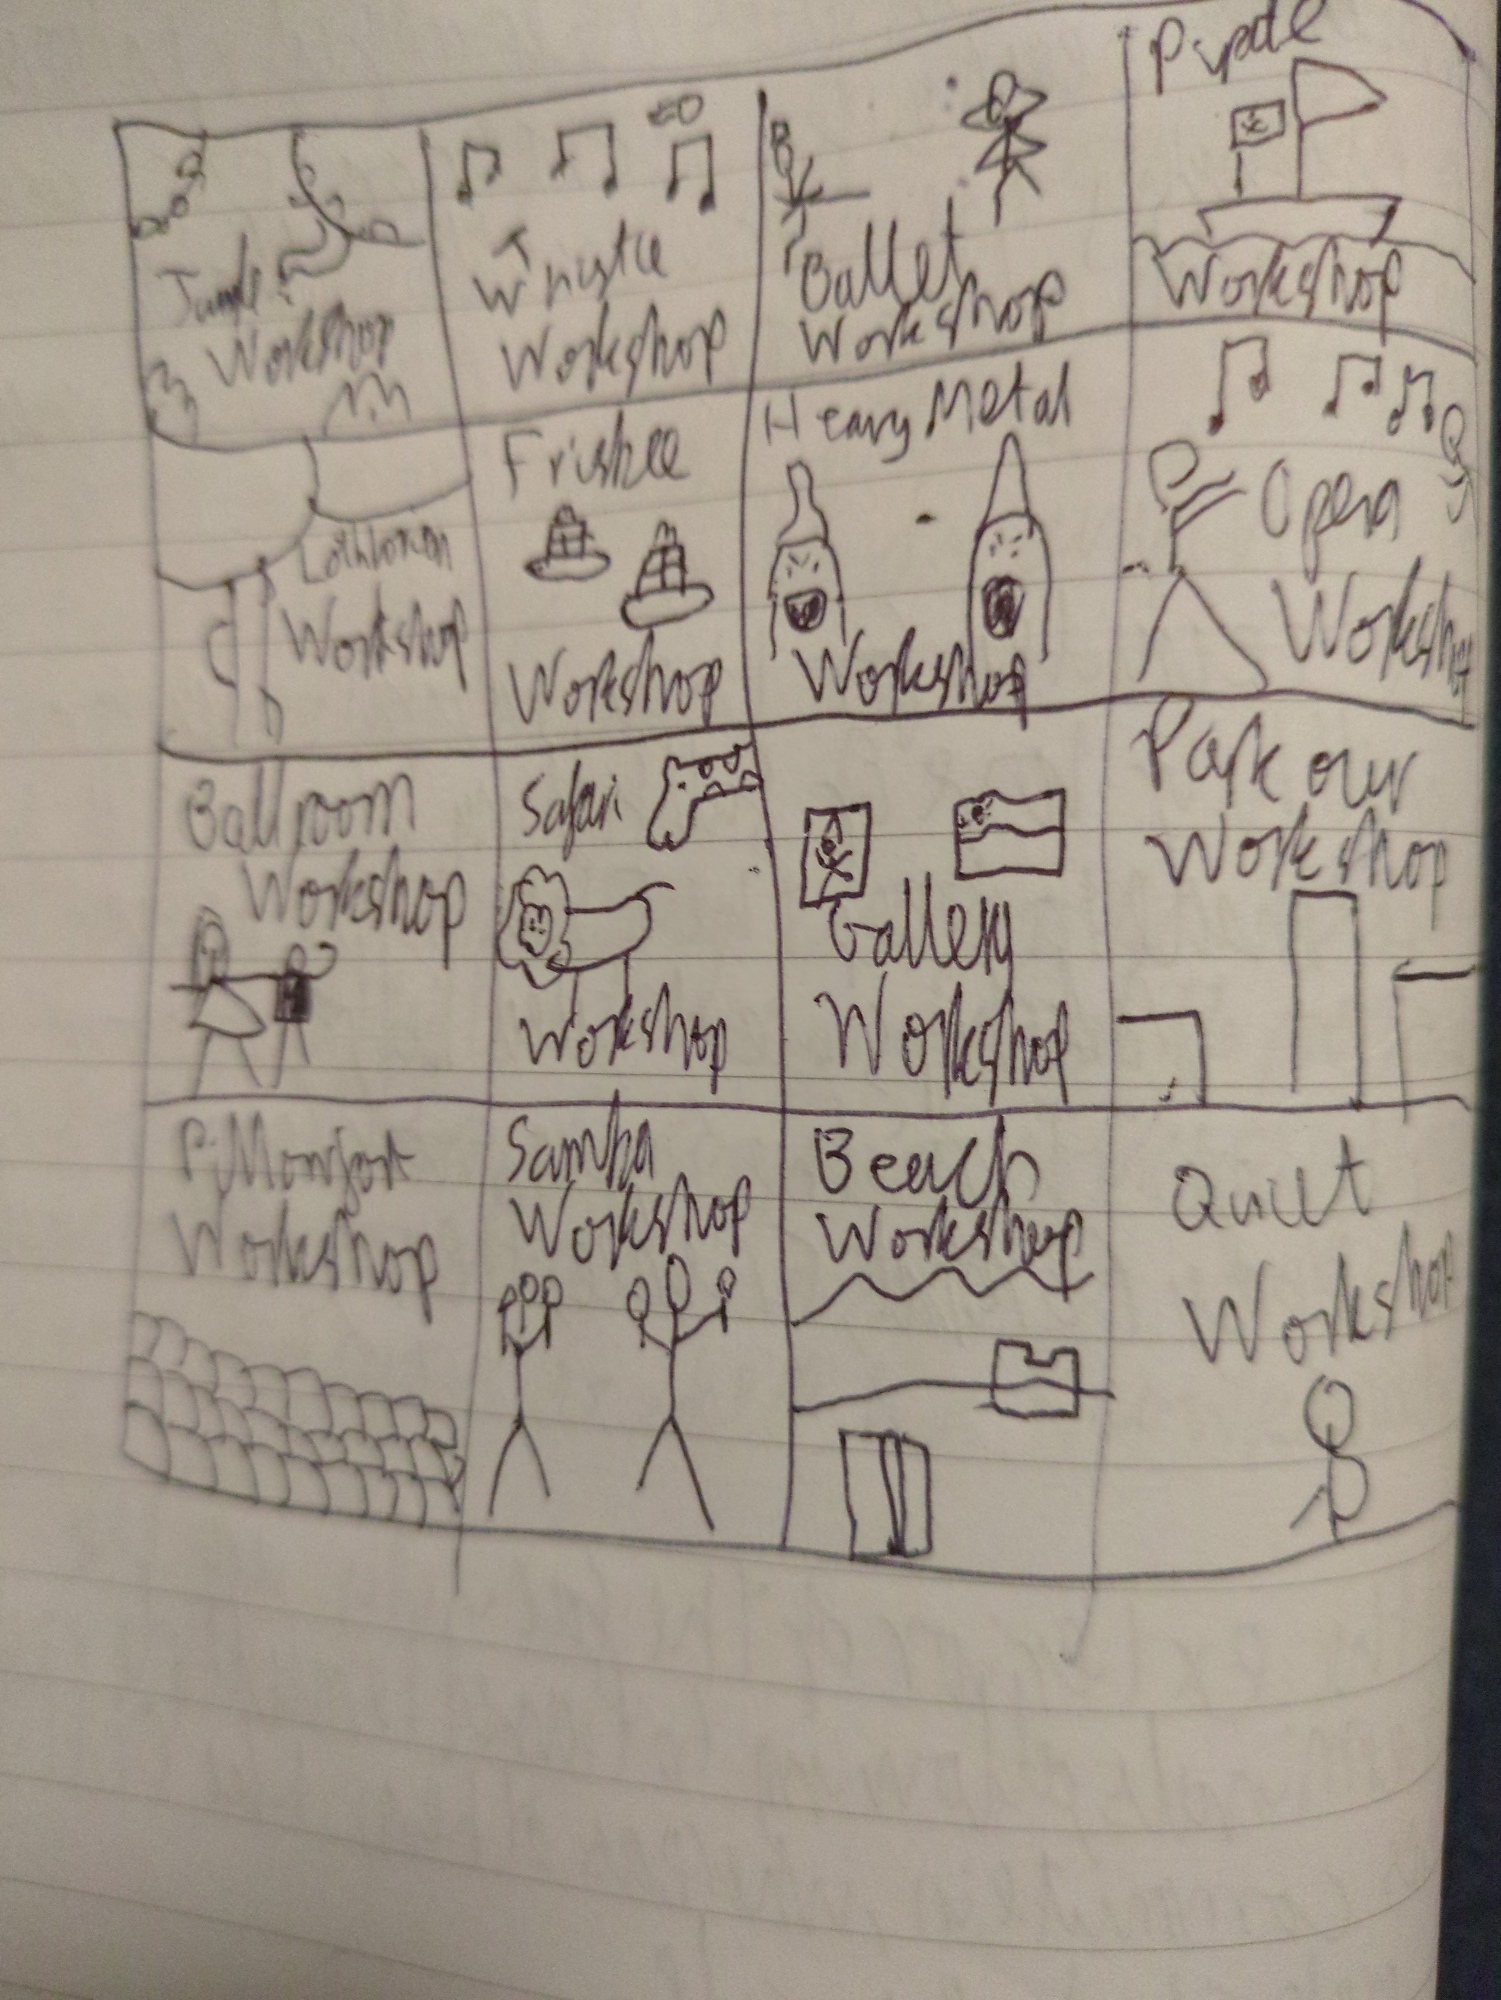 Jungle
Workshop
Workshop
Ballet
Workshop
Pirate
Workshop
Lothlorien
Workshop
Frisbee
Workshop
Heavy Metal
Workshop
Opera
Workshop
Ballroom
Workshop
Safari
Workshop
Gallery
Workshop
Parkour
Workshop
Workshop
Samba
Workshop
Beach
Workshop
Quiet
Workshop